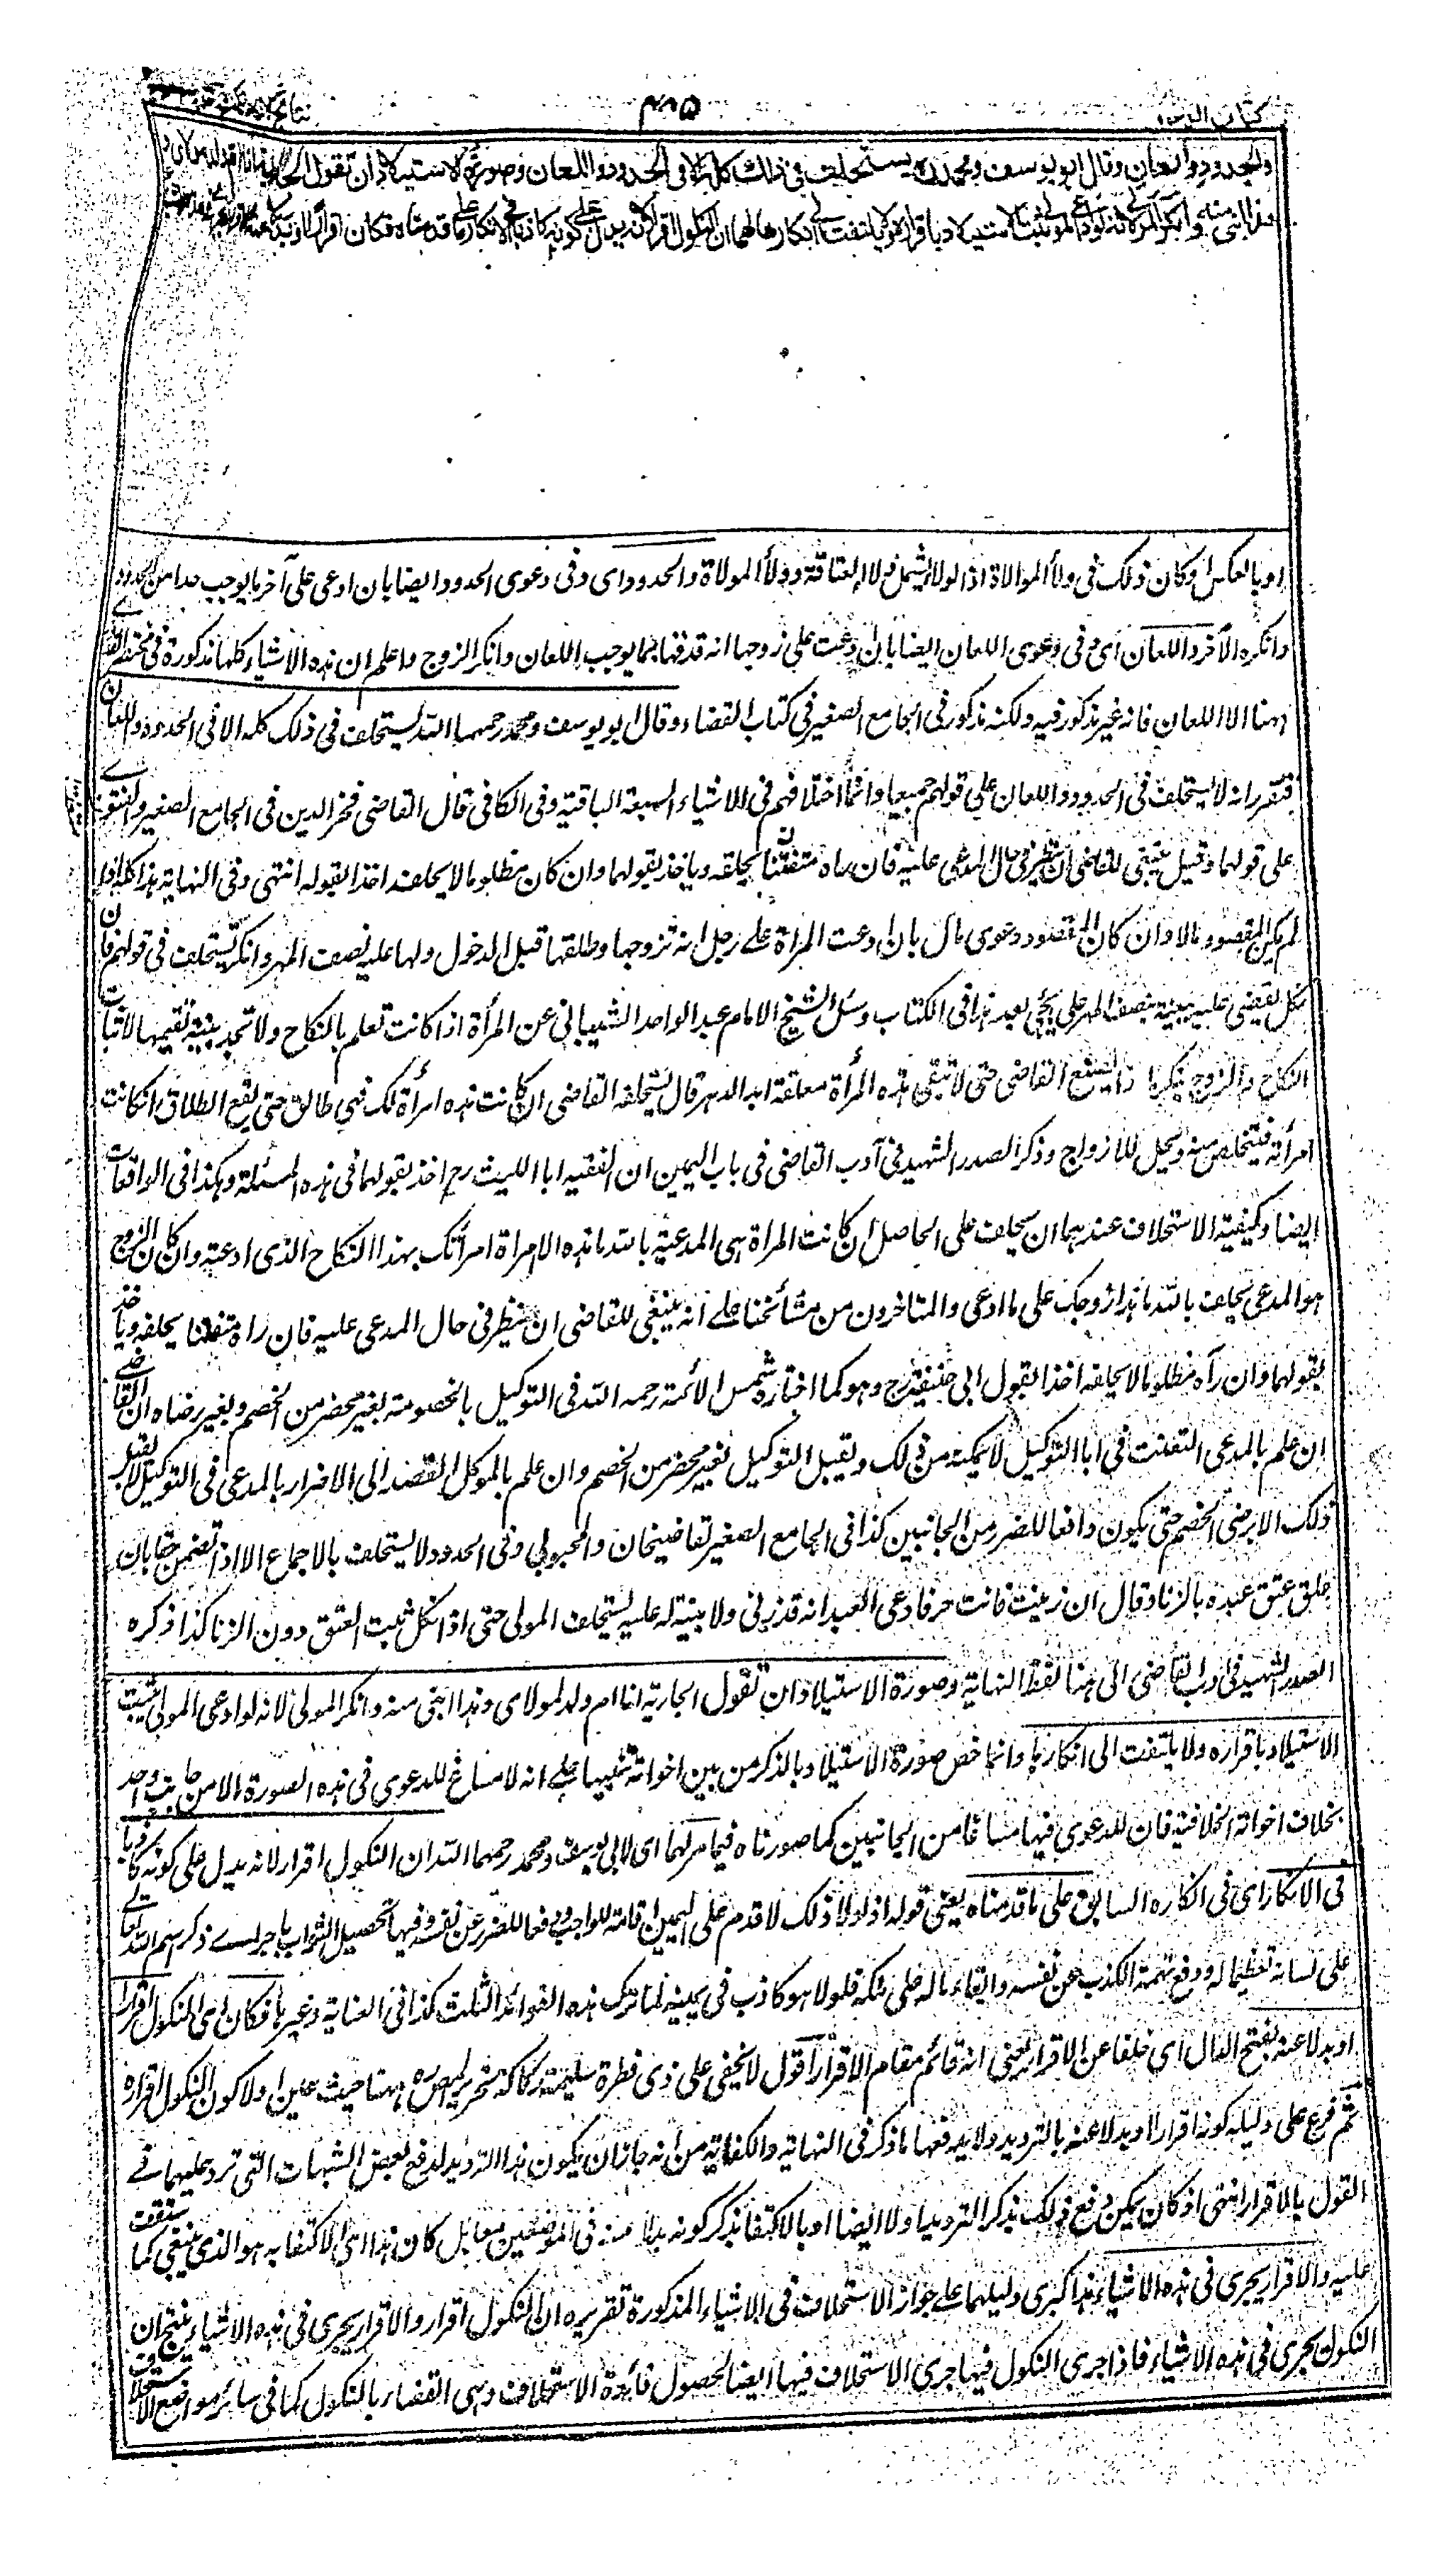 كتاب الدعوى
۴۸۵
والحدود واللعان وقال ابو يوسف ومحمد رح يستحلف فى ذلك كله الا فى الحدود واللعان وصورة الاستيلاد ان تقول الجارية انا ام ولد لمولاى و
هذا ابنى منه وانكر المولى لانه لو ادعى المولى ثبت الاستيلاد باقراره ولا يلتفت الى انكارها لهما ان النكول اقرار لانه يدل على كونه كاذبا فى الانكار على ما قدمناه فكان اقرارا او بدلا عنه
او بالعكس او كان ذلك فى ولاء الموالاة اذ الولاء يشمل ولاء العتاقة وولاء الموالاة والحدود اى وفى دعوى الحدود ايضا بان ادعى على آخر ما يوجب حدا من الحدود
وانكره الآخر واللعان اى وفى دعوى اللعان ايضا بان ادعت على زوجها انه قذفها بما يوجب اللعان وانكر الزوج واعلم ان هذه الاشياء كلها مذكورة فى مختصر القدورى
ههنا الا اللعان فانه غير مذكور فيه ولكنه مذكور فى الجامع الصغير فى كتاب القضاء وقال ابو يوسف ومحمد رحمهما الله يستحلف فى ذلك كله الا فى الحدود واللعان
فتقرر انه لا يستحلف فى الحدود واللعان على قولهم جميعا وانما اختلافهم فى الاشياء السبعة الباقية وفى الكافى قال القاضى فخر الدين فى الجامع الصغير والفتوى
على قولهما وقيل ينبغى للقاضى ان ينظر فى حال المدعى عليه فان رآه متعنتا يحلفه وياخذ بقولهما وان كان مظلوما لا يحلفه اخذا بقوله انتهى وفى النهاية هذا كله اذا
لم يكن المقصود مالا وان كان المقصود دعوى مال بان ادعت المرأة على رجل انه تزوجها وطلقها قبل الدخول ولها عليه نصف المهر وانكر يستحلف فى قولهم فان
نكل يقضى عليه بنصف المهر على ما يجئ بعد هذا فى الكتاب وسئل الشيخ الامام عبد الواحد الشيبانى عن المرأة اذا كانت تعلم بالنكاح ولا تجد بينة تقيمها لاثبات
النكاح والزوج ينكر ماذا يصنع القاضى حتى لا تبقى هذه المرأة معلقة ابد الدهر قال يستحلفه القاضى ان كانت هذه امرأة لك فهى طالق حتى يقع الطلاق ان كانت
امرأته فيتخلص منه وتحل للازواج وذكر الصدر الشهيد فى آداب القاضى فى باب اليمين ان الفقيه ابا الليث رح اخذ بقولهما فى هذه المسئلة وهكذا فى الواقعات
ايضا وكيفية الاستحلاف عندهما ان يحلف على الحاصل ان كانت المرأة هى المدعية بالله ما هذه الامرأة امرأتك بهذا النكاح الذى ادعته وان كان الزوج
هو المدعى يحلف بالله ما هذا زوجك على ما ادعى والمتاخرون من مشائخنا على انه ينبغى للقاضى ان ينظر فى حال المدعى عليه فان رآه متعنتا يحلفه وياخذ
بقولهما وان رآه مظلوما لا يحلفه اخذا بقول ابى حنيفة رح وهو كما اختاره شمس الائمة رحمه الله فى التوكيل بالخصومة بغير محضر من الخصم وبغير رضاه ان القاضى
ان علم بالمدعى التعنت فى اباء التوكيل لا يمكنه من ذلك ويقبل التوكيل بغير محضر من الخصم وان علم بالموكل القصد الى الاضرار بالمدعى فى التوكيل لا يقبل
ذلك الا برضى الخصم حتى يكون دافعا للضرر من الجانبين كذا فى الجامع الصغير لقاضيخان والمحبوبى وفى الحدود لا يستحلف بالاجماع الا اذا تضمن حقا بان
علق عتق عبده بالزنا وقال ان زنيت فانت حر فادعى العبد انه قد زنى ولا بينة له عليه يستحلف المولى حتى اذا نكل ثبت العتق دون الزنا كذا ذكره
الصدر الشهيد فى ادب القاضى الى هنا لفظ النهاية وصورة الاستيلاد ان تقول الجارية انا ام ولد لمولاى وهذا ابنى منه وانكر المولى لانه لو ادعى المولى ثبت
الاستيلاد باقراره ولا يلتفت الى انكارها وانما خص صورة الاستيلاد بالذكر من بين اخواته تنبيها على انه لا مساغ للدعوى فى هذه الصورة الا من جانب واحد
بخلاف اخواته الخلافية فان للدعوى فيها مساغا من الجانبين كما صورناه فيما مر لهما اى لابى يوسف ومحمد رحمهما الله ان النكول اقرار لانه يدل على كونه كاذبا
فى الانكار اى فى انكاره السابق على ما قدمناه يعنى قوله اذ لولا ذلك لاقدم على اليمين اقامة للواجب ودفعا للضرر عن نفسه وفيها تحصيل الثواب باجراء ذكر اسم الله تعالى
على لسانه تعظيما له ودفع تهمة الكذب عن نفسه وابقاء ماله على ملكه فلولا هو كاذب فى يمينه لما ترك هذه الفوائد الثلث كذا فى العناية وغيرها فكان اى النكول اقرارا
او بدلا عنه بفتح الدال اى خلفا عن الاقرار يعنى انه قائم مقام الاقرار اقول لا يخفى على ذى فطرة سليمة ركاكة تحرير المص ره ههنا حيث عين اولا كون النكول اقرارا
ثم فرع على دليله كونه اقرارا او بدلا عنه بالترديد ولا يدفعها ما ذكر فى النهاية والكفاية من انه جاز ان يكون هذا الترديد لدفع بعض الشبهات التى ترد عليهما فى
القول بالاقرار انتهى اذ كان يمكن دفع ذلك بذكر الترديد اولا ايضا او بالاكتفاء بذكر كونه بدلا عنه فى الموضعين بل كان هذا اى الاكتفاء به هو الذى ينبغى كما ستقف
عليه والاقرار يجرى فى هذه الاشياء هذا كبرى دليلهما على جواز الاستحلاف فى الاشياء المذكورة تقريره ان النكول اقرار والاقرار يجرى فى هذه الاشياء ينتج ان
النكول يجرى فى هذه الاشياء فاذا جرى النكول فيها جرى الاستحلاف فيها ايضا لحصول فائدة الاستحلاف وهى القضاء بالنكول كما فى سائر مواضع الاستحلاف